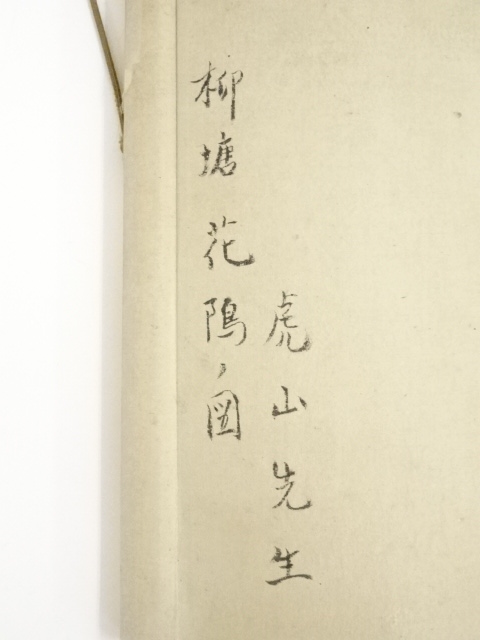 虎山先生
柳塘花隖ノ図